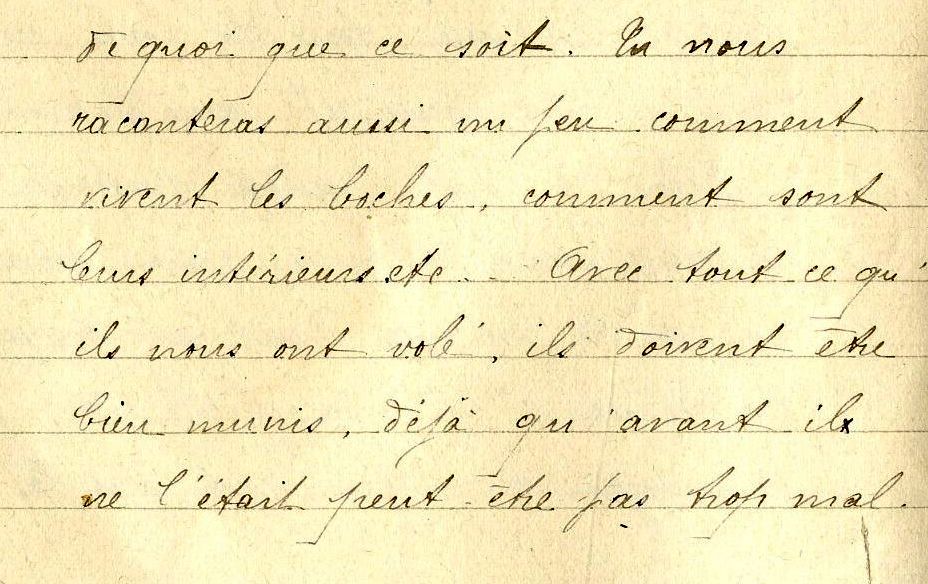 de quoi que ce soit. Tu nous
raconteras aussi un peu comment
vivent les boches, comment sont
leurs intérieurs etc.. Avec tout ce qu'
ils nous ont volé, ils doivent être
bien munis, déjà qu'avant ils
ne l'était peut-être pas trop mal.